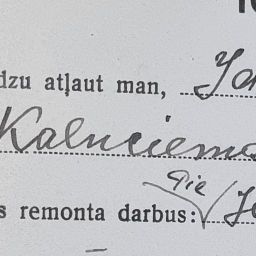 dzu atļaut man, Jo
Kalnciema
Pie
s remonta darbus: Je